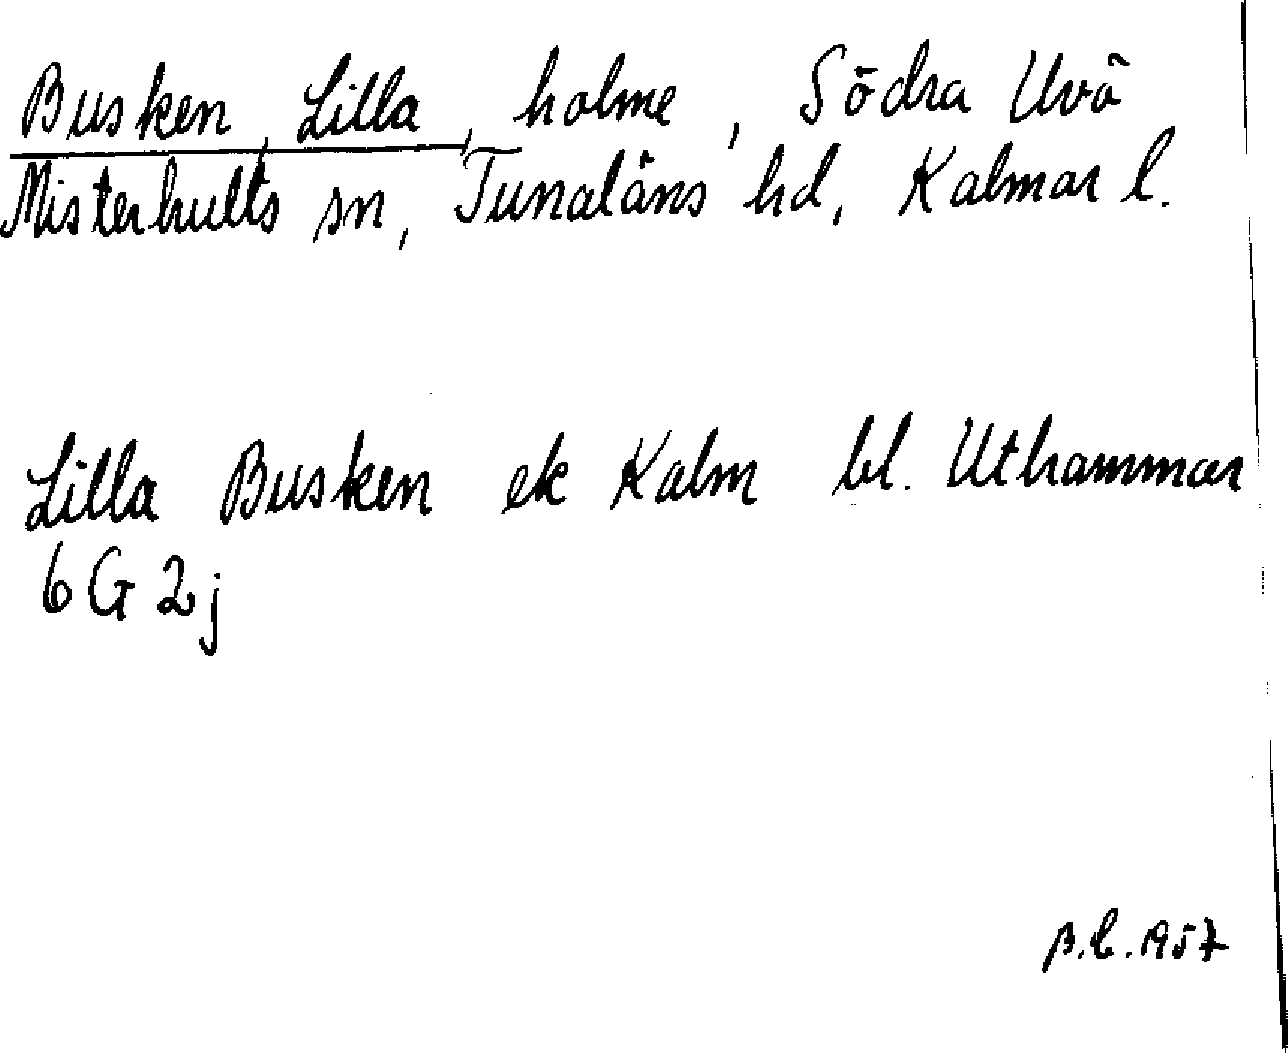 Busken, Lilla, holme, Södra Uvö
Misterhults sn, Tunaläns hd, Kalmar l.
Lilla Busken ek Kalm bl. Uthammar
6 G 2j
B.L. 1957